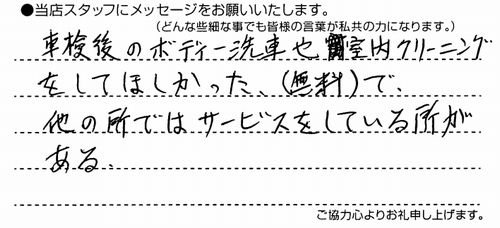 ●当店スタッフにメッセージをお願いいたします。
（どんな些細な事でも皆様の言葉が私共の力になります。）
車検後のボディー洗車や室内クリーニング
をしてほしかった、（無料）で、
他の所ではサービスをしている所が
ある、
ご協力心よりお礼申し上げます。